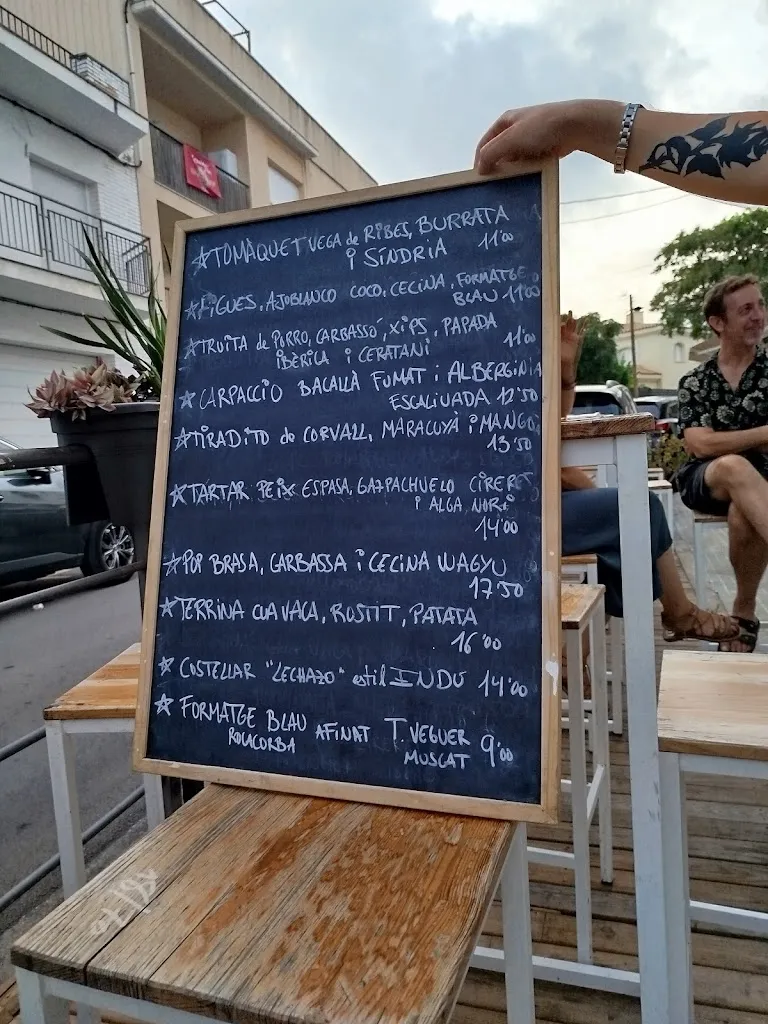 ☆TOMÀQUET VEGA de RIBES, BURRATA
i SÍNDRIA 11'00
☆FIGUES, AJOBLANCO COCO, CECINA, FORMATGE
BLAU 11'00
☆TRUITA de PORRO, CARBASSÓ, XIPS, PAPADA
IBÈRICA i CERATANI 11'00
☆CARPACCIO BACALLÀ FUMAT i ALBERGINIA
ESCALIVADA 12'50
☆TIRADITO de CORVALL, MARACUYÀ i MANGO
13'50
☆TARTAR PEIX ESPASA, GAZPACHUELO CIRERET
i ALGA NORI
14'00
☆POP BRASA, CARBASSA i CECINA WAGYU
17'50
☆TERRINA CUA VACA, ROSTIT, PATATA
16'00
☆COSTELLAR "LECHAZO" estil INDÚ 14'00
☆FORMATGE BLAU AFINAT T. VEGUER
ROCACORBA MUSCAT 9'00